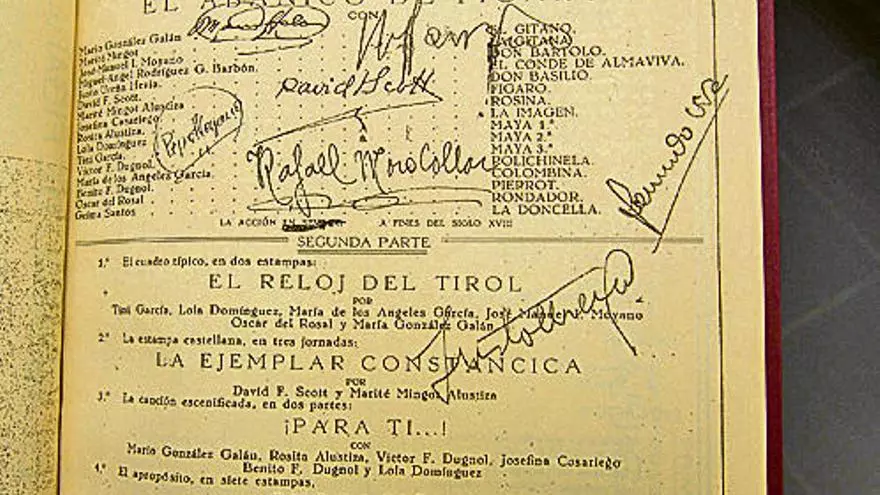 EL ABANICO DE
CON
María González Galán EL GITANO.
Marité Mingot LA GITANA.
José-Manuel I. Moyano DON BARTOLO.
Miguel-Angel Rodríguez G. Barbón. EL CONDE DE ALMAVIVA.
Justo Ureña Hevia. DON BASILIO.
David F. Scott. FIGARO.
Marité Mingot Alustiza ROSINA.
Josefina Cosariego LA IMAGEN.
Rosita Alustiza. MAYA 1.ª
Lola Domínguez MAYA 2.ª
Tini García. MAYA 3.ª
Víctor F. Dugnol. POLICHINELA.
María de los Angeles García. COLOMBINA.
Benito F. Dugnol. PIERROT.
Oscar del Rosal RONDADOR.
Gelina Santos LA DONCELLA.
David F Scott
Pepe Moyano
Rafael Moro Collar
Justo Ureña
LA ACCIÓN EN A FINES DEL SIGLO XVIII
SEGUNDA PARTE
1.ª El cuadro típico, en dos estampas:
EL RELOJ DEL TIROL
POR
Tini García, Lola Domínguez, María de los Angeles García, José Manuel P. Moyano
Oscar del Rosal y María González Galán
2.ª La estampa castellana, en tres jornadas:
LA EJEMPLAR CONSTANCICA
POR
David F. Scott y Marité Mingot Alustiza
3.ª La canción escenificada, en dos partes:
¡PARA TI...!
CON
María González Galán, Rosita Alustiza, Víctor F. Dugnol, Josefina Cosariego
Benito F. Dugnol y Lola Domínguez
4.ª El apropósito, en siete estampas,